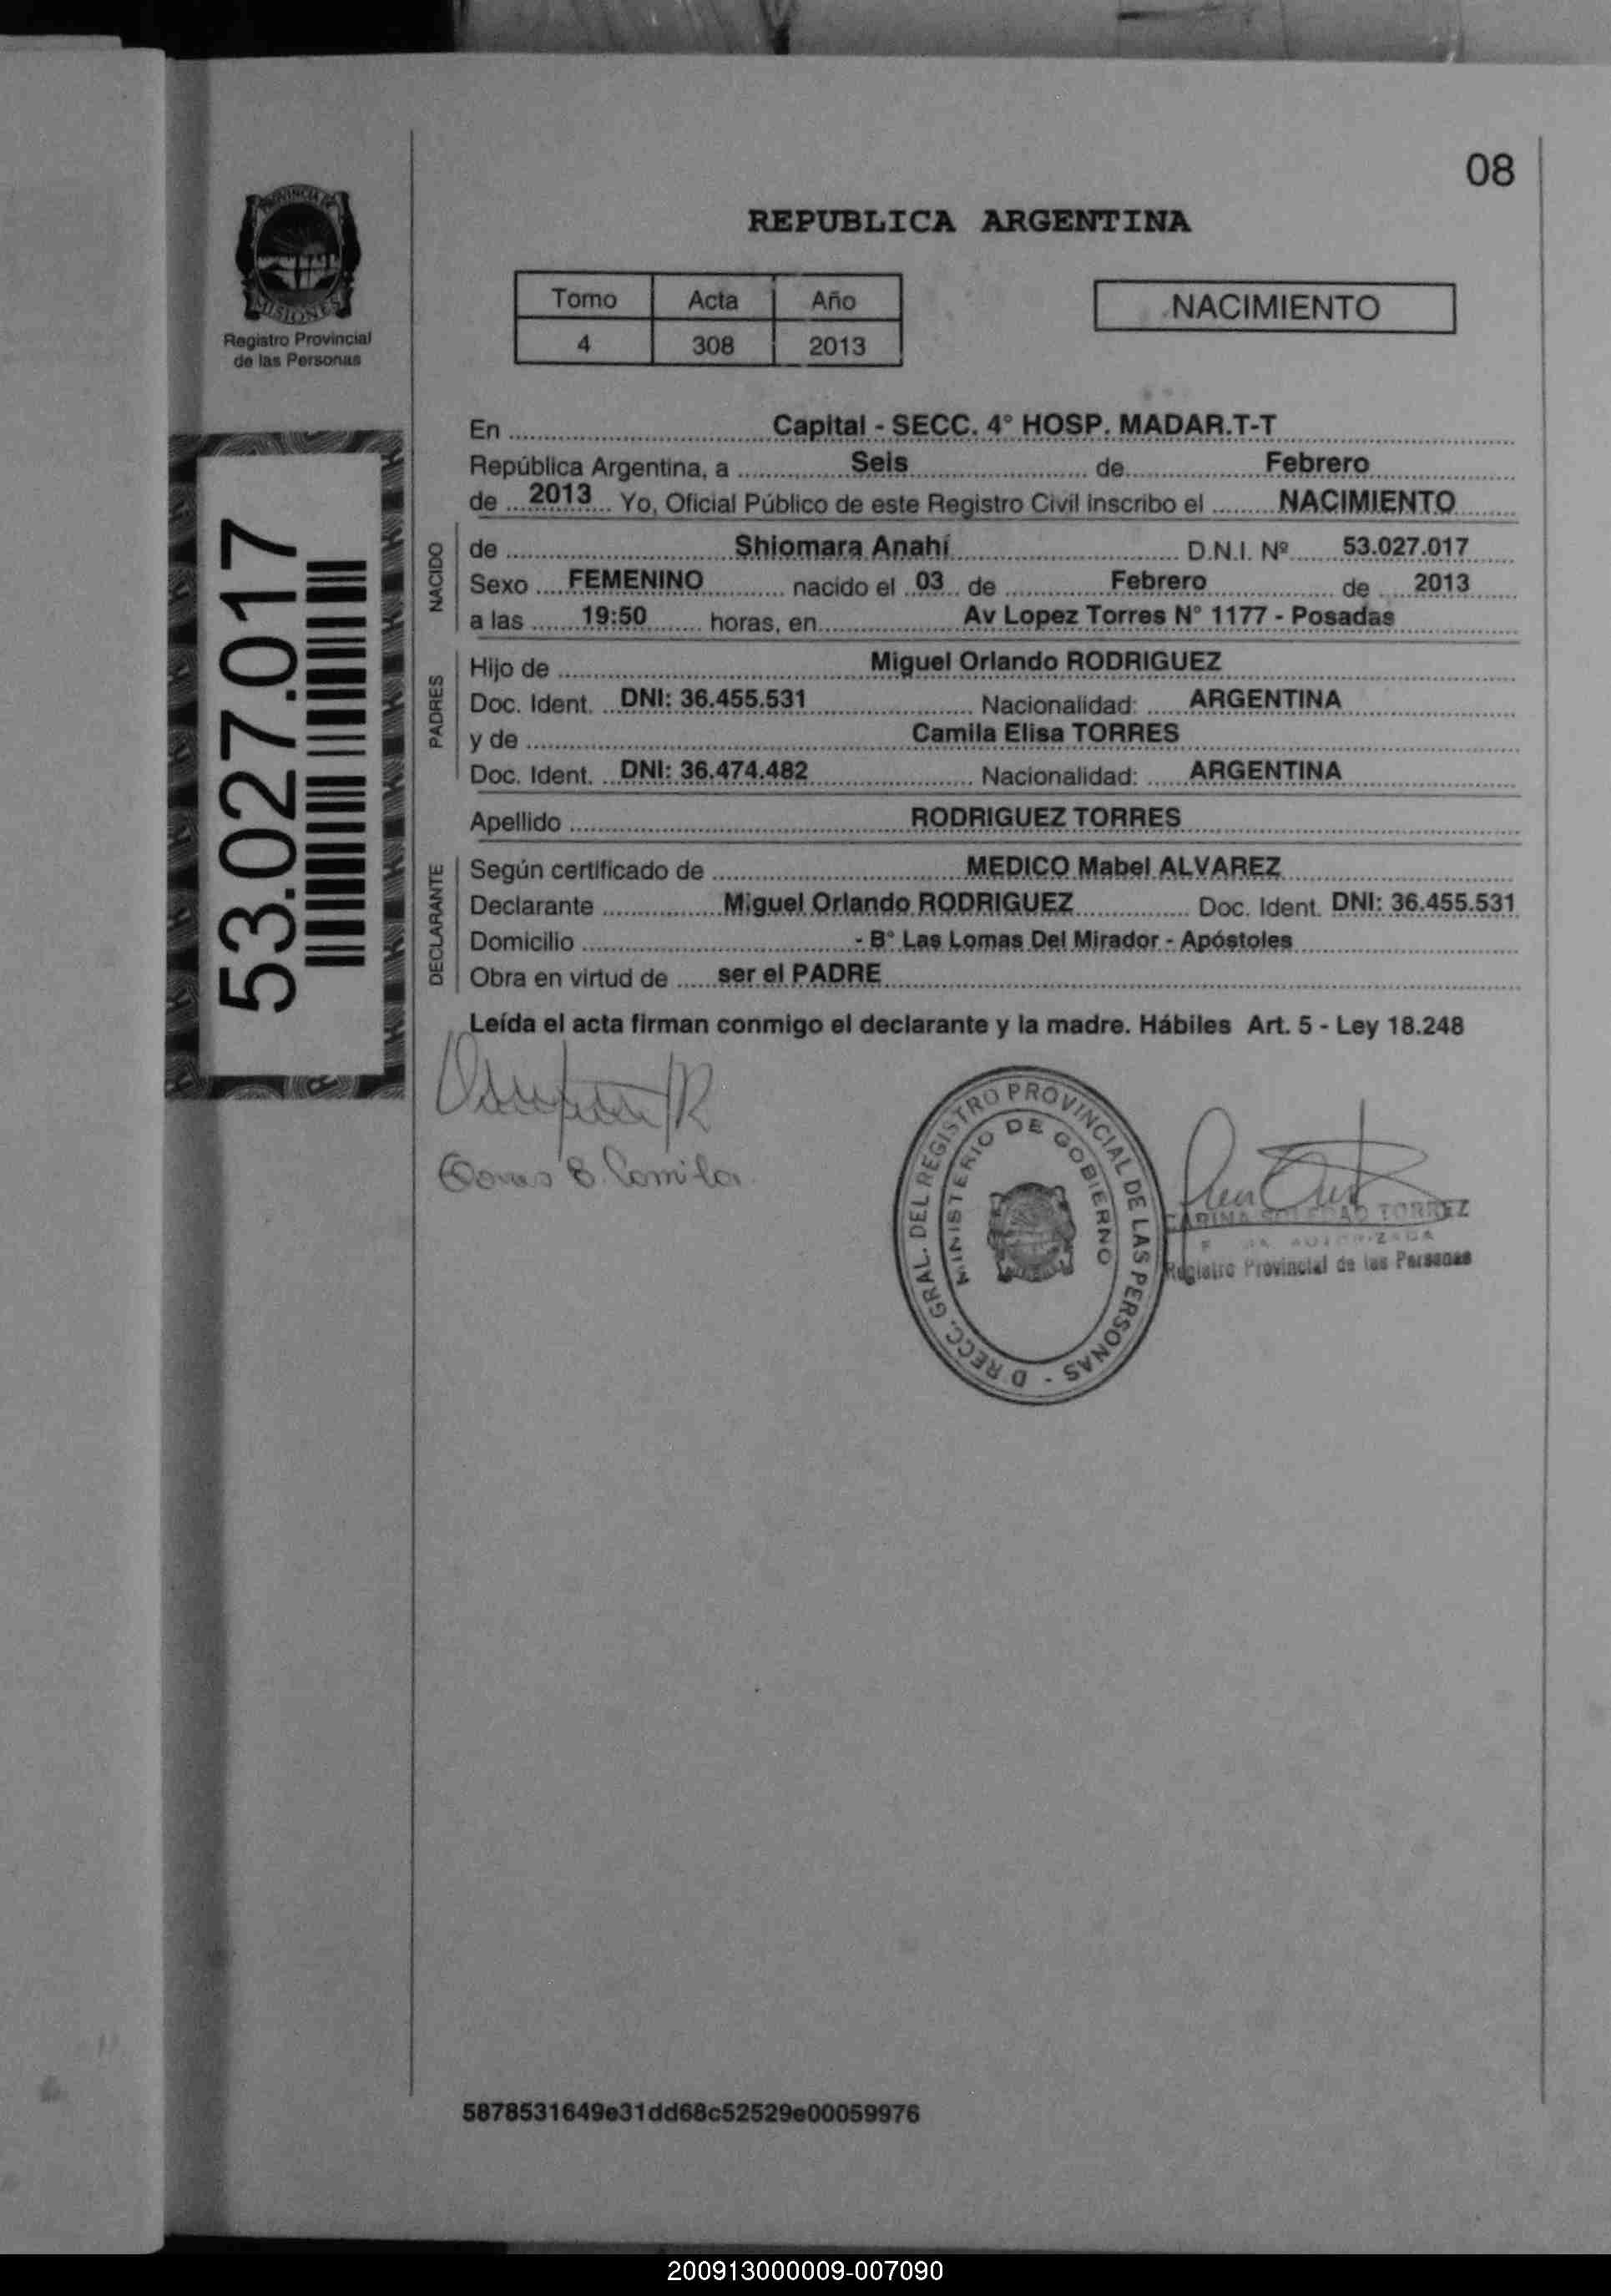 08
PROVINCIA DE
MISIONES
Registro Provincial
de las Personas
REPUBLICA ARGENTINA
Tomo Acta Año
4 308 2013
NACIMIENTO
53.027.017
En Capital - SECC. 4° HOSP. MADAR.T-T
República Argentina, a Seis de Febrero
de 2013 Yo, Oficial Público de este Registro Civil inscribo el NACIMIENTO
NACIDO
de Shiomara Anahí D.N.I. Nº 53.027.017
Sexo FEMENINO nacido el 03 de Febrero de 2013
a las 19:50 horas, en Av Lopez Torres N° 1177 - Posadas
PADRES
Hijo de Miguel Orlando RODRIGUEZ
Doc. Ident. DNI: 36.455.531 Nacionalidad: ARGENTINA
y de Camila Elisa TORRES
Doc. Ident. DNI: 36.474.482 Nacionalidad: ARGENTINA
Apellido RODRIGUEZ TORRES
DECLARANTE
Según certificado de MEDICO Mabel ALVAREZ
Declarante Miguel Orlando RODRIGUEZ Doc. Ident. DNI: 36.455.531
Domicilio - B° Las Lomas Del Mirador - Apóstoles
Obra en virtud de ser el PADRE
Leída el acta firman conmigo el declarante y la madre. Hábiles Art. 5 - Ley 18.248
Camila
D RECC. GRAL. DEL REGISTRO PROVINCIAL DE LAS PERSONAS -
MINISTERIO DE GOBIERNO
CARINA SOLEDAD TORREZ
AUTORIZADA
Registro Provincial de las Personas
5878531649e31dd68c52529e00059976
200913000009-007090